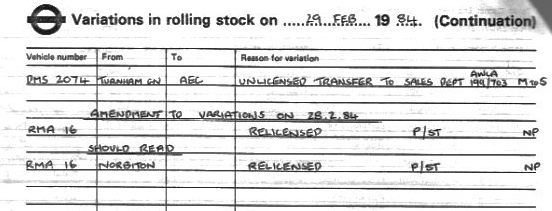 Variations in rolling stock on .....29..FEB.... 19 84. (Continuation)
Vehicle number From To Reason for variation
DMS 2074 TURNHAM GN AEC UNLICENSED TRANSFER TO SALES DEPT AWLA 199/763 M to S
AMENDMENT TO VARIATIONS ON 28.2.84
RMA 16 RELICENSED P/ST NP
SHOULD READ
RMA 16 NORBITON RELICENSED P/ST NP